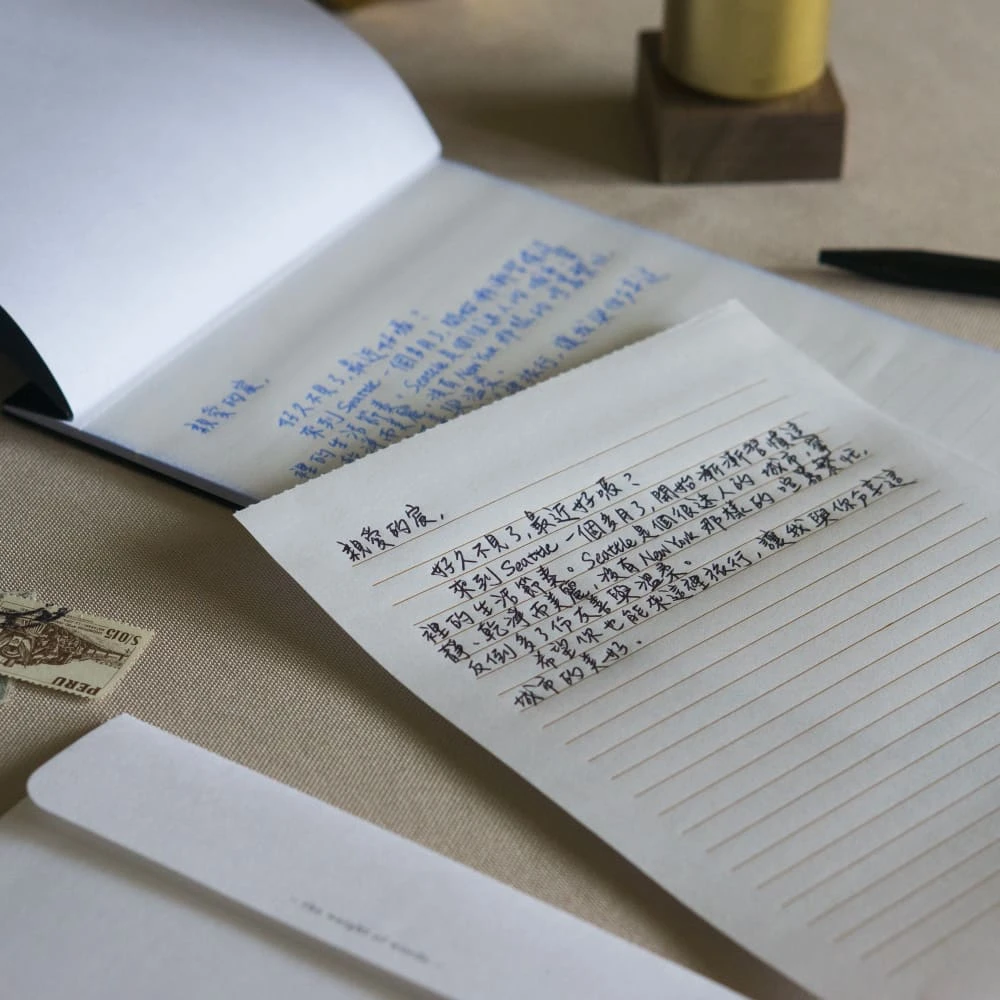 親愛的宸,
好久不見了,最近好嗎?
來到 Seattle 一個多月了,開始漸漸習慣這
裡的生活節奏。Seattle是個很迷人的城市,寧
靜、乾淨而美麗,沒有New York 那樣的喧囂繁忙,
反倒多了份友善與溫柔。
希望你也能來這裡旅行,讓我與你分享這
城市的美好。
親愛的宸,
好久不見了,最近好嗎?
來到 Seattle 一個多月了,開始漸漸習慣這
裡的生活節奏。Seattle是個很迷人的城市,寧
S/0.15
PERU
the weight of words